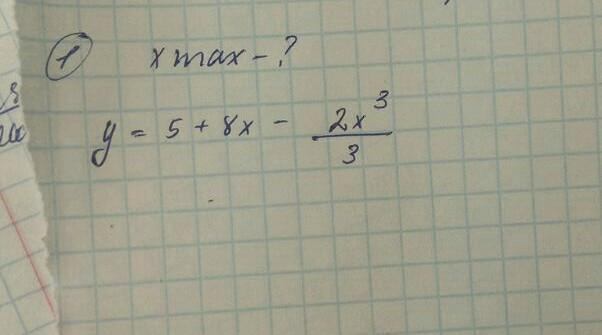 1 x max - ?
y = 5 + 8x - 2x³/3